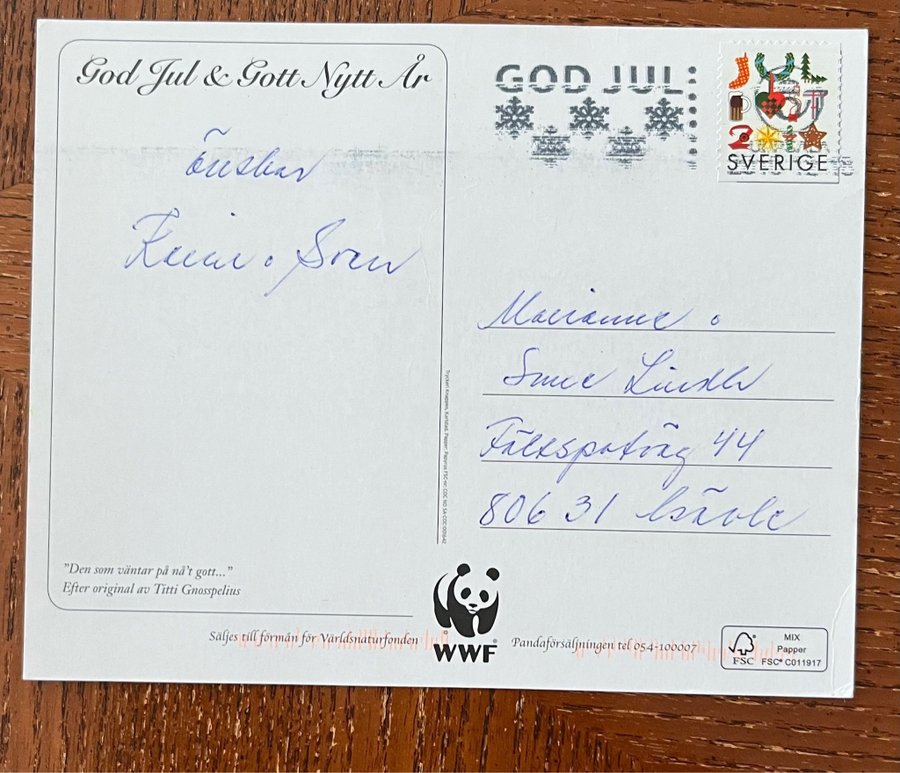 God Jul & Gott Nytt År
önskar
o Sven
GOD JUL
SVERIGE
Marianne o
Sune
Fältspatväg 44
806 31 Gävle
"Den som väntar på nå't gott..."
Efter original av Titti Gnosspelius
Säljes till förmån för Världsnaturfonden
WWF
Pandaförsäljningen tel 054-100007
FSC
MIX
Papper
FSC® C011917